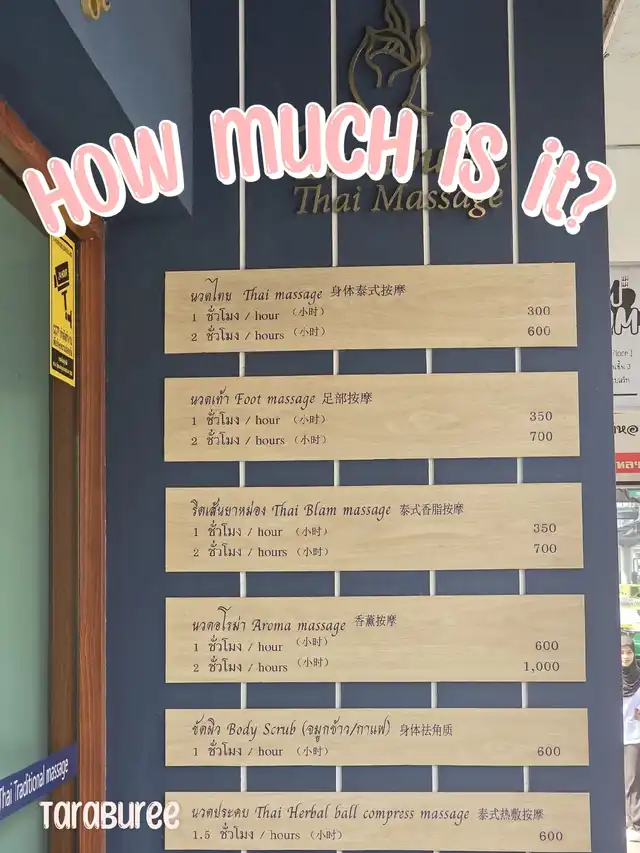 HOW MUCH iS iT?
Thai Massage
นวดไทย Thai massage 身体泰式按摩
1 ชั่วโมง / hour （小时） 300
2 ชั่วโมง / hours （小时） 600
นวดเท้า Foot massage 足部按摩
1 ชั่วโมง / hour （小时） 350
2 ชั่วโมง / hours （小时） 700
รีดเส้นยาหม่อง Thai Blam massage 泰式香脂按摩
1 ชั่วโมง / hour （小时） 350
2 ชั่วโมง / hours （小时） 700
นวดอโรม่า Aroma massage 香薰按摩
1 ชั่วโมง / hour （小时） 600
2 ชั่วโมง / hours （小时） 1,000
ขัดผิว Body Scrub (จมูกข้าว/กาแฟ) 身体祛角质
1 ชั่วโมง / hour （小时） 600
นวดประคบ Thai Herbal ball compress massage 泰式热敷按摩
1.5 ชั่วโมง / hours （小时） 600
Thai Traditional massage
TaraBuree